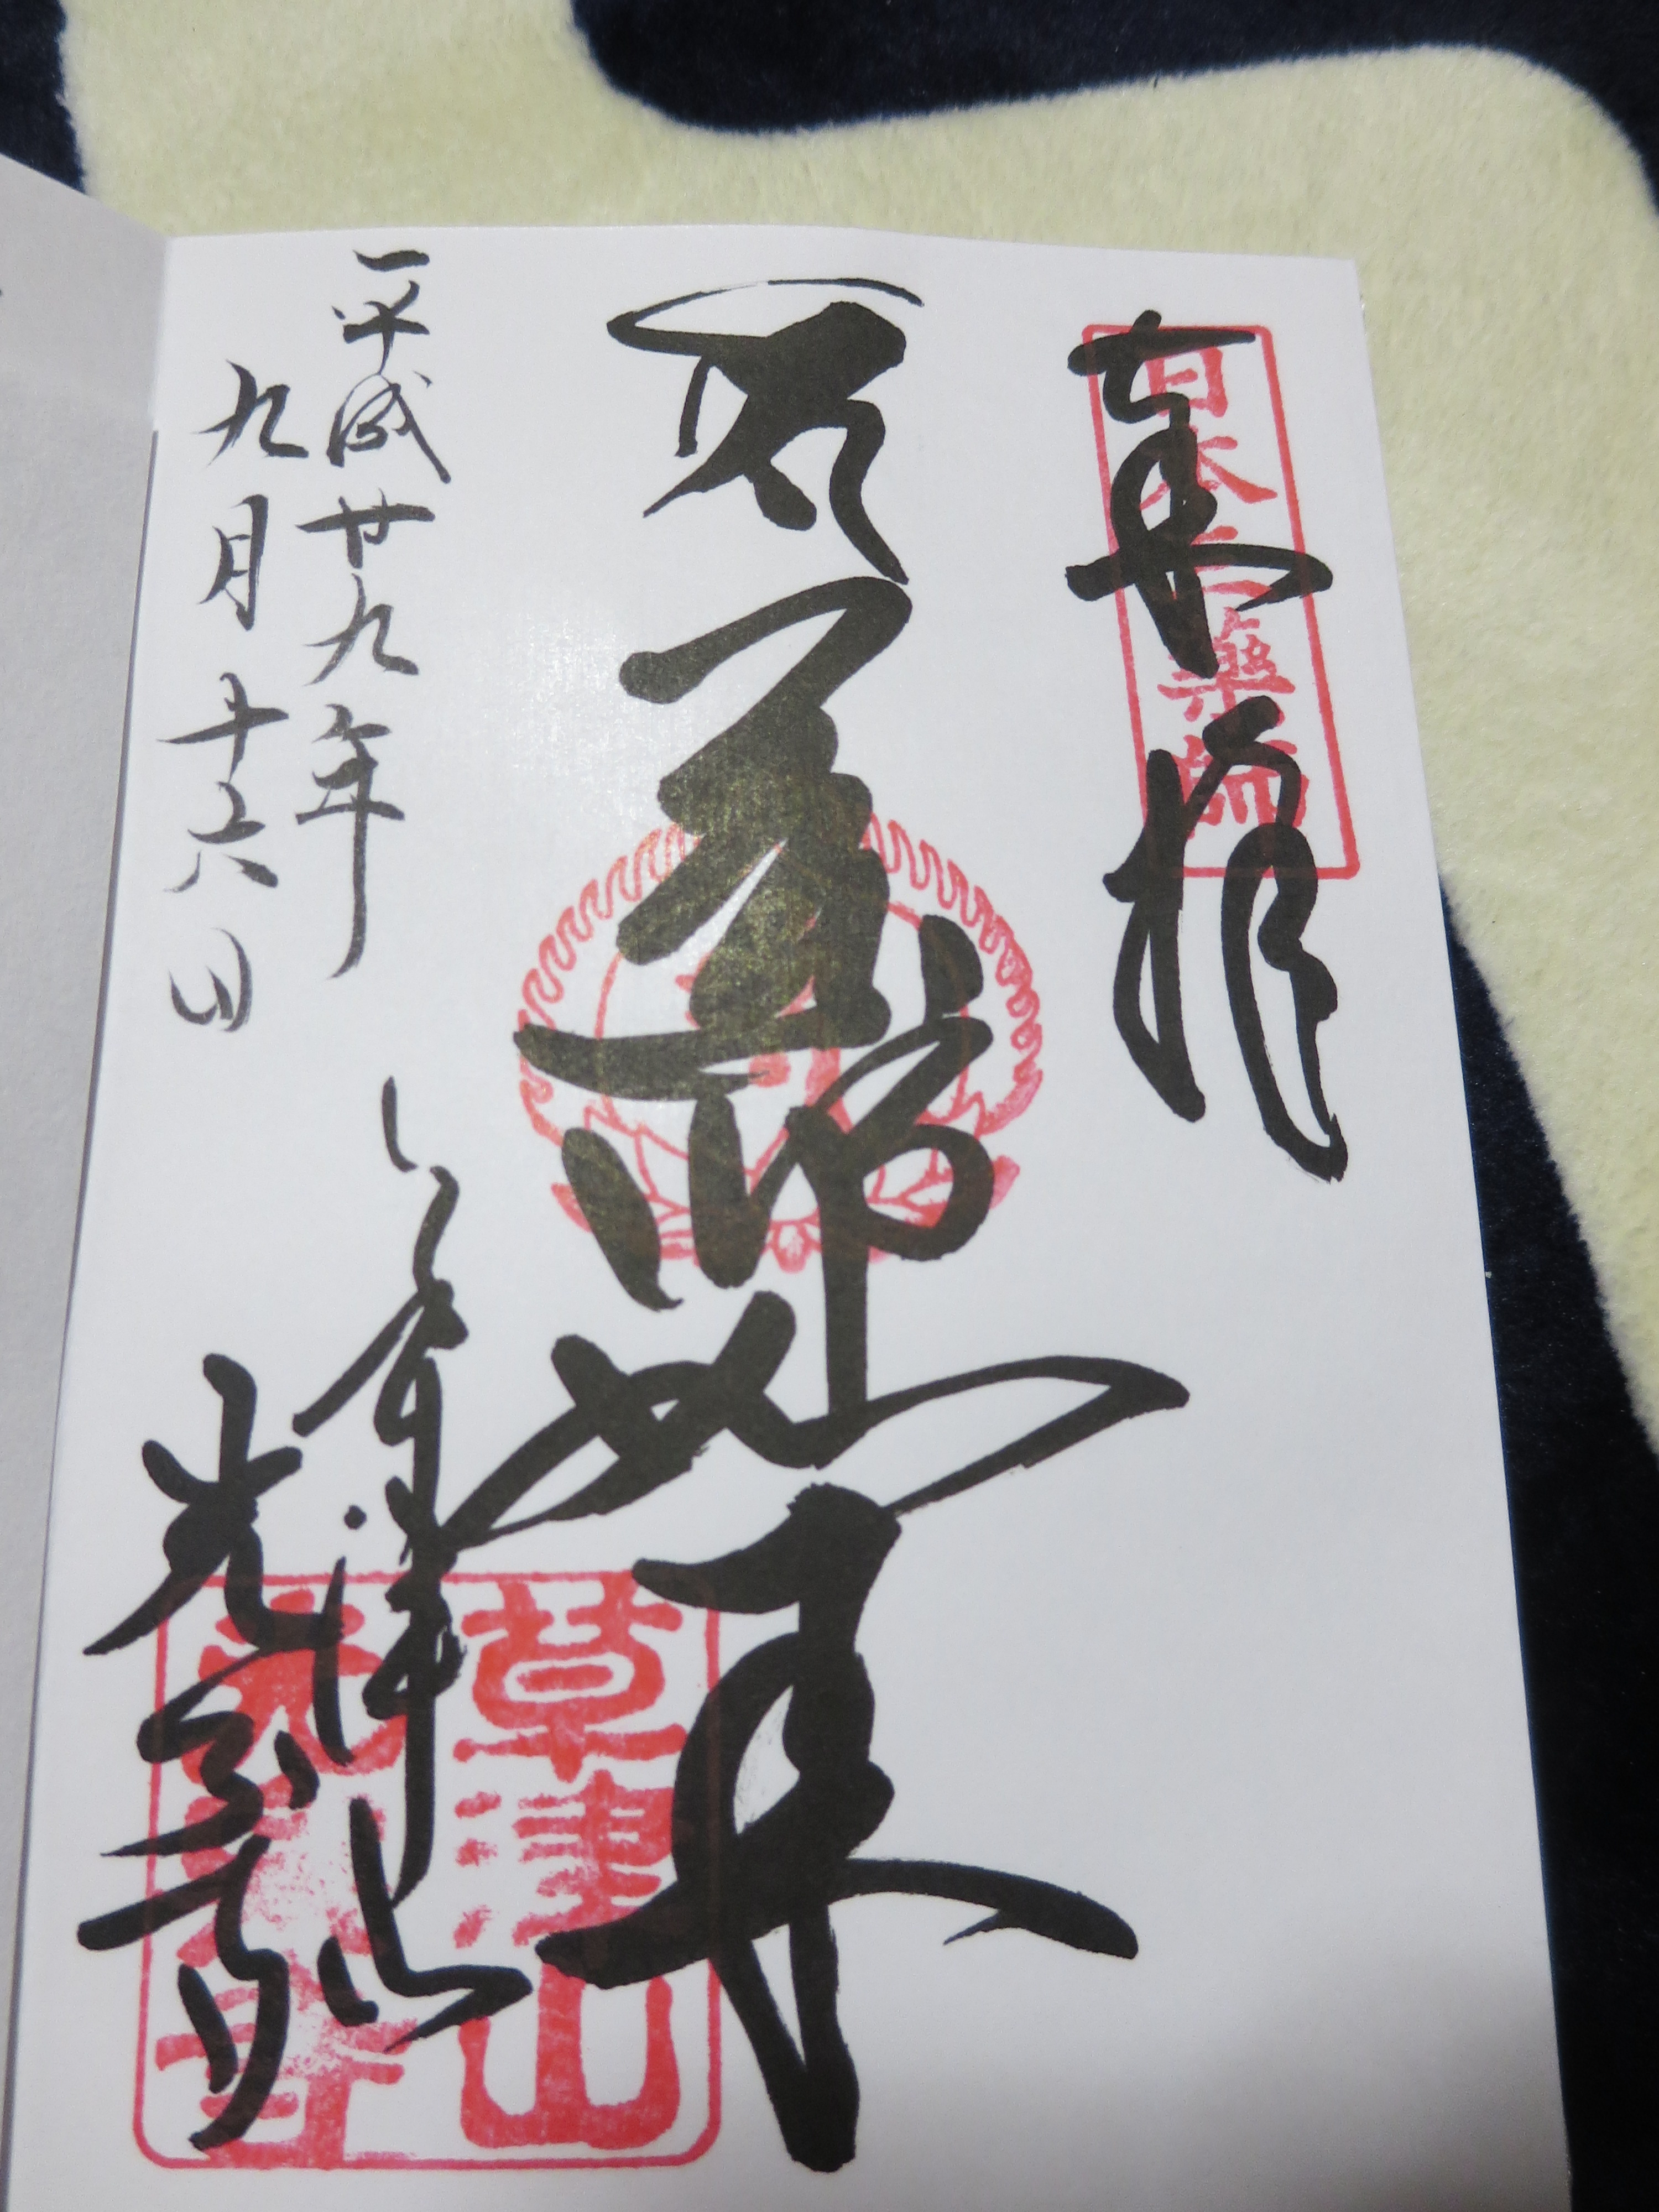 奉拝
日本三薬師
薬師如来
平成廿九年
九月十六日
草津山
光泉寺
草津山
光泉寺